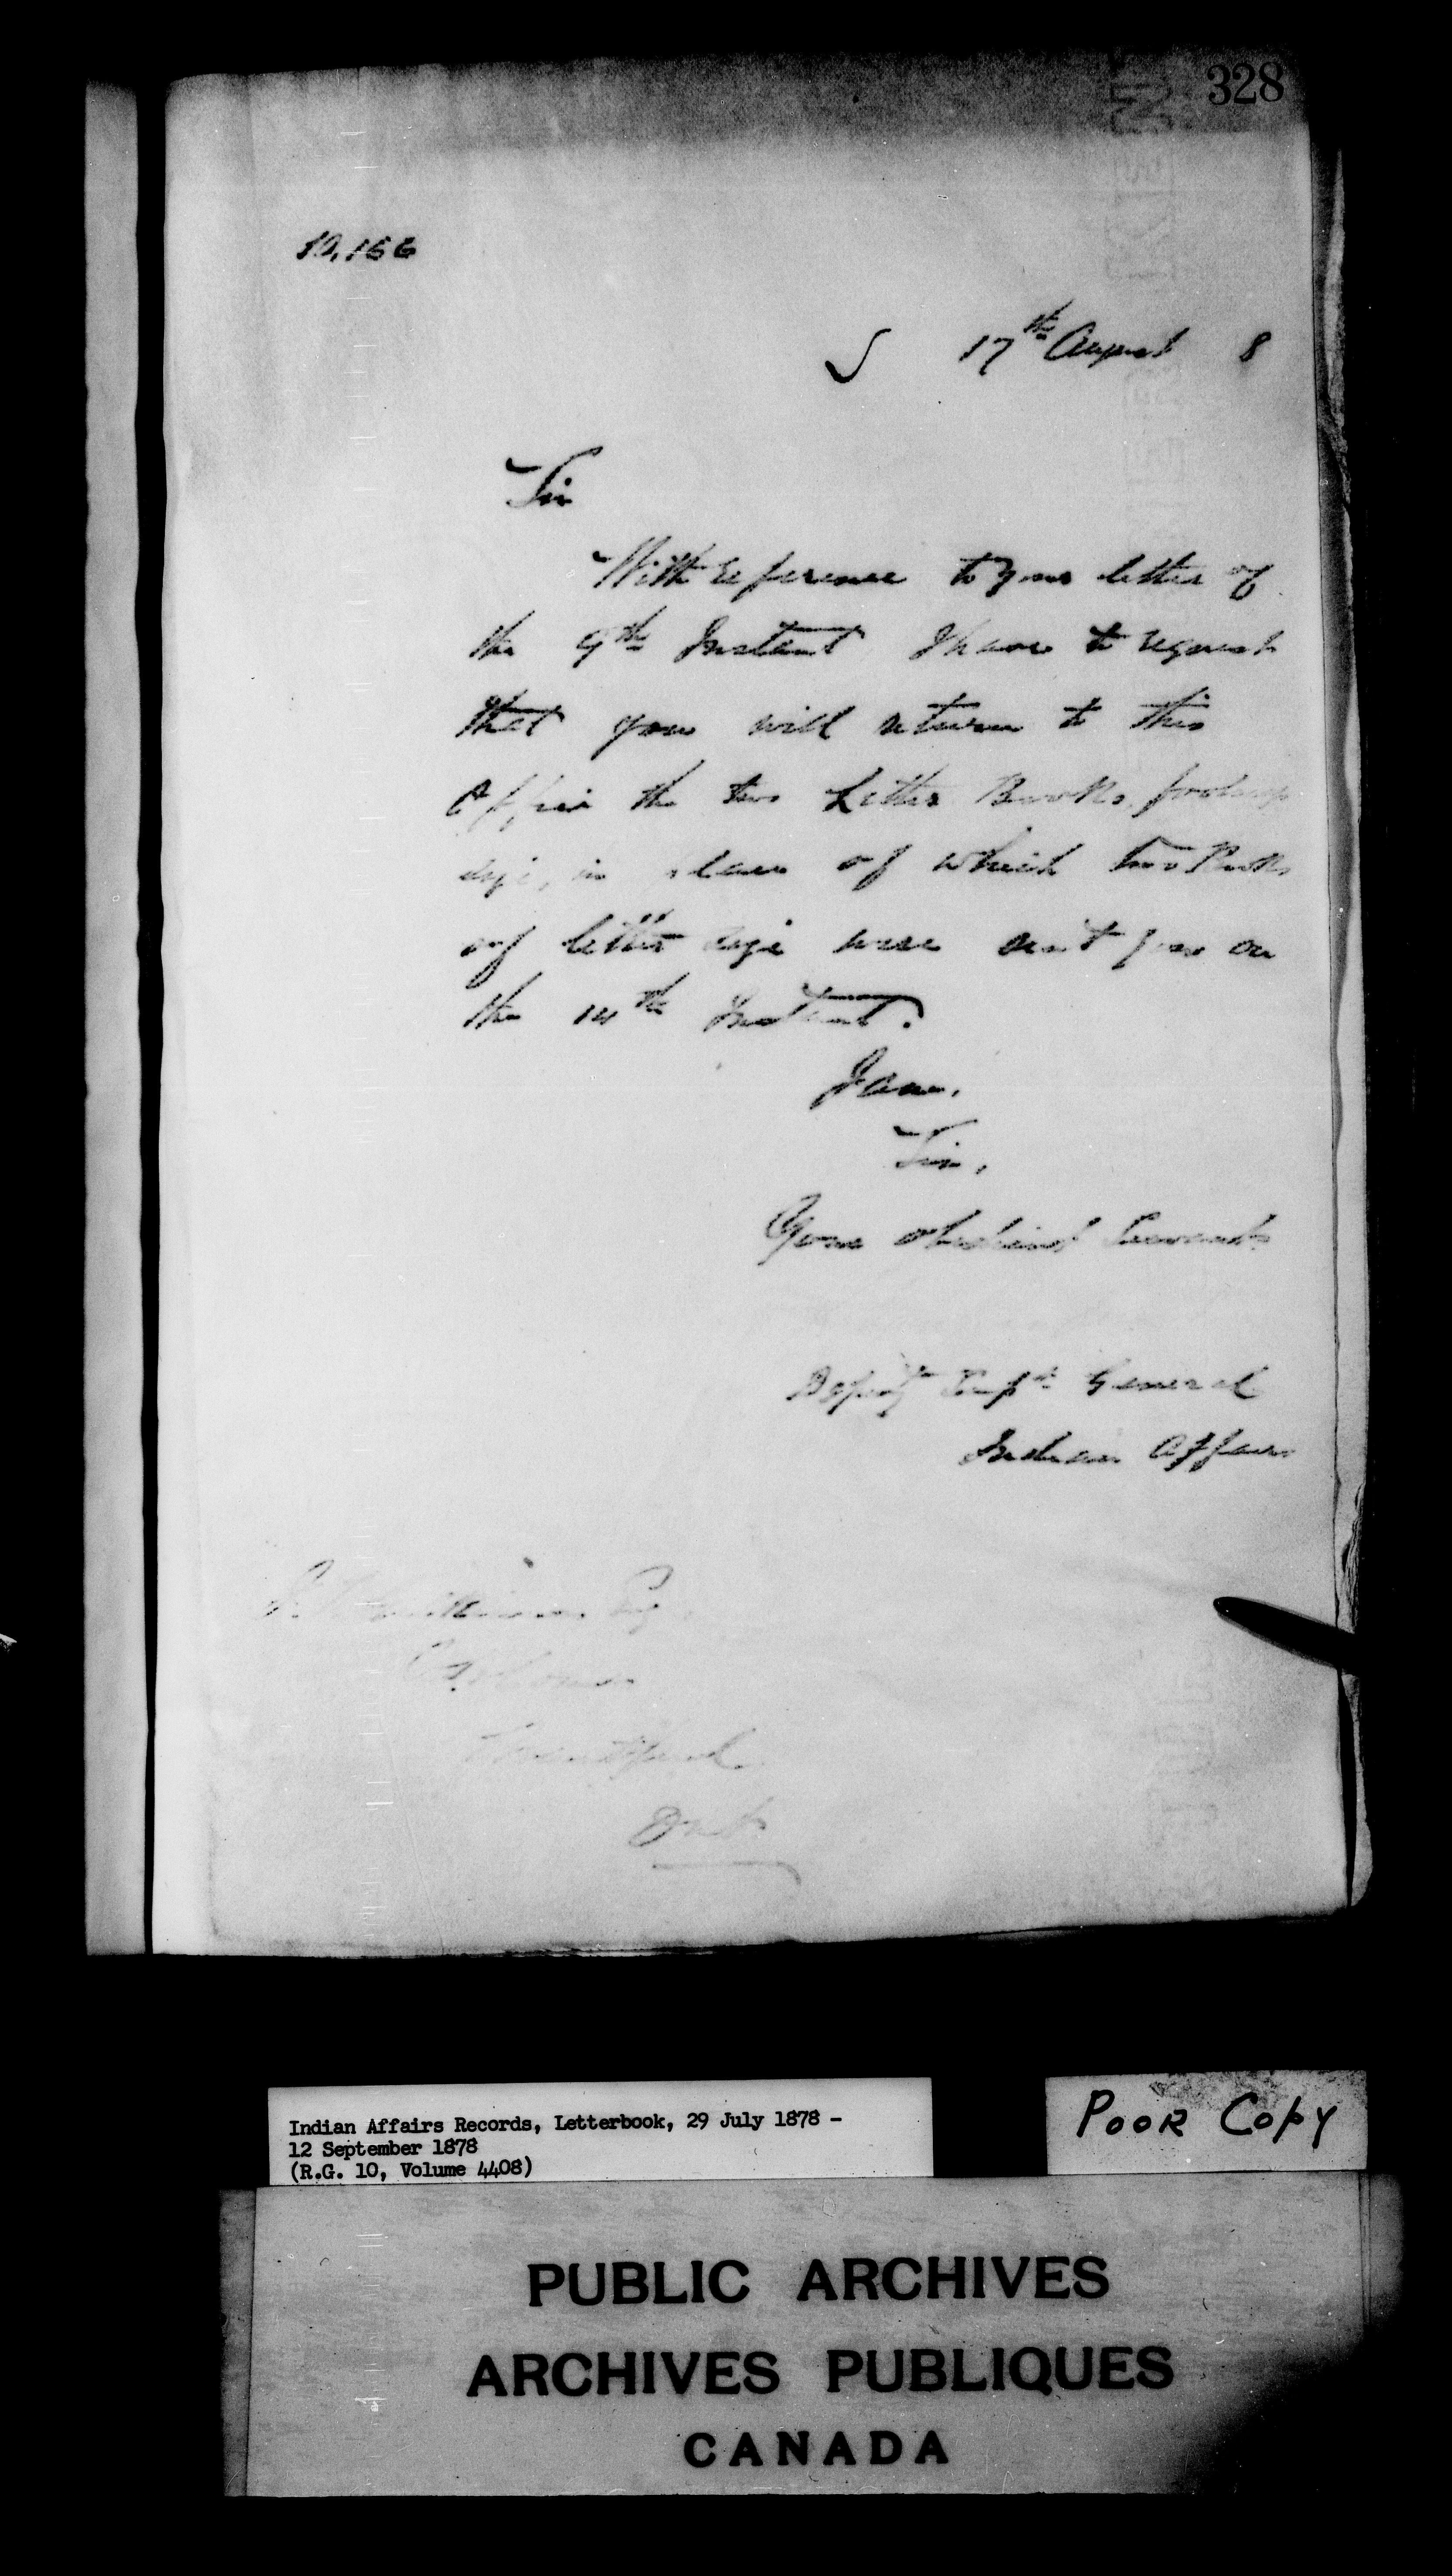 328
10,166
17th August 8
Sir
With reference to your letter of
the 9th Instant I have to request
that you will return to this
Office the two Letter Books, foolscap
size, in place of which two Books
of letter size were sent you on
the 14th Instant.
I am,
Sir,
Your obedient Servant
Deputy Supt General
Indian Affairs
Esq
Brantford
Ont
Indian Affairs Records, Letterbook, 29 July 1878 -
12 September 1878
(R.G. 10, Volume 4408)
POOR COPY
PUBLIC ARCHIVES
ARCHIVES PUBLIQUES
CANADA